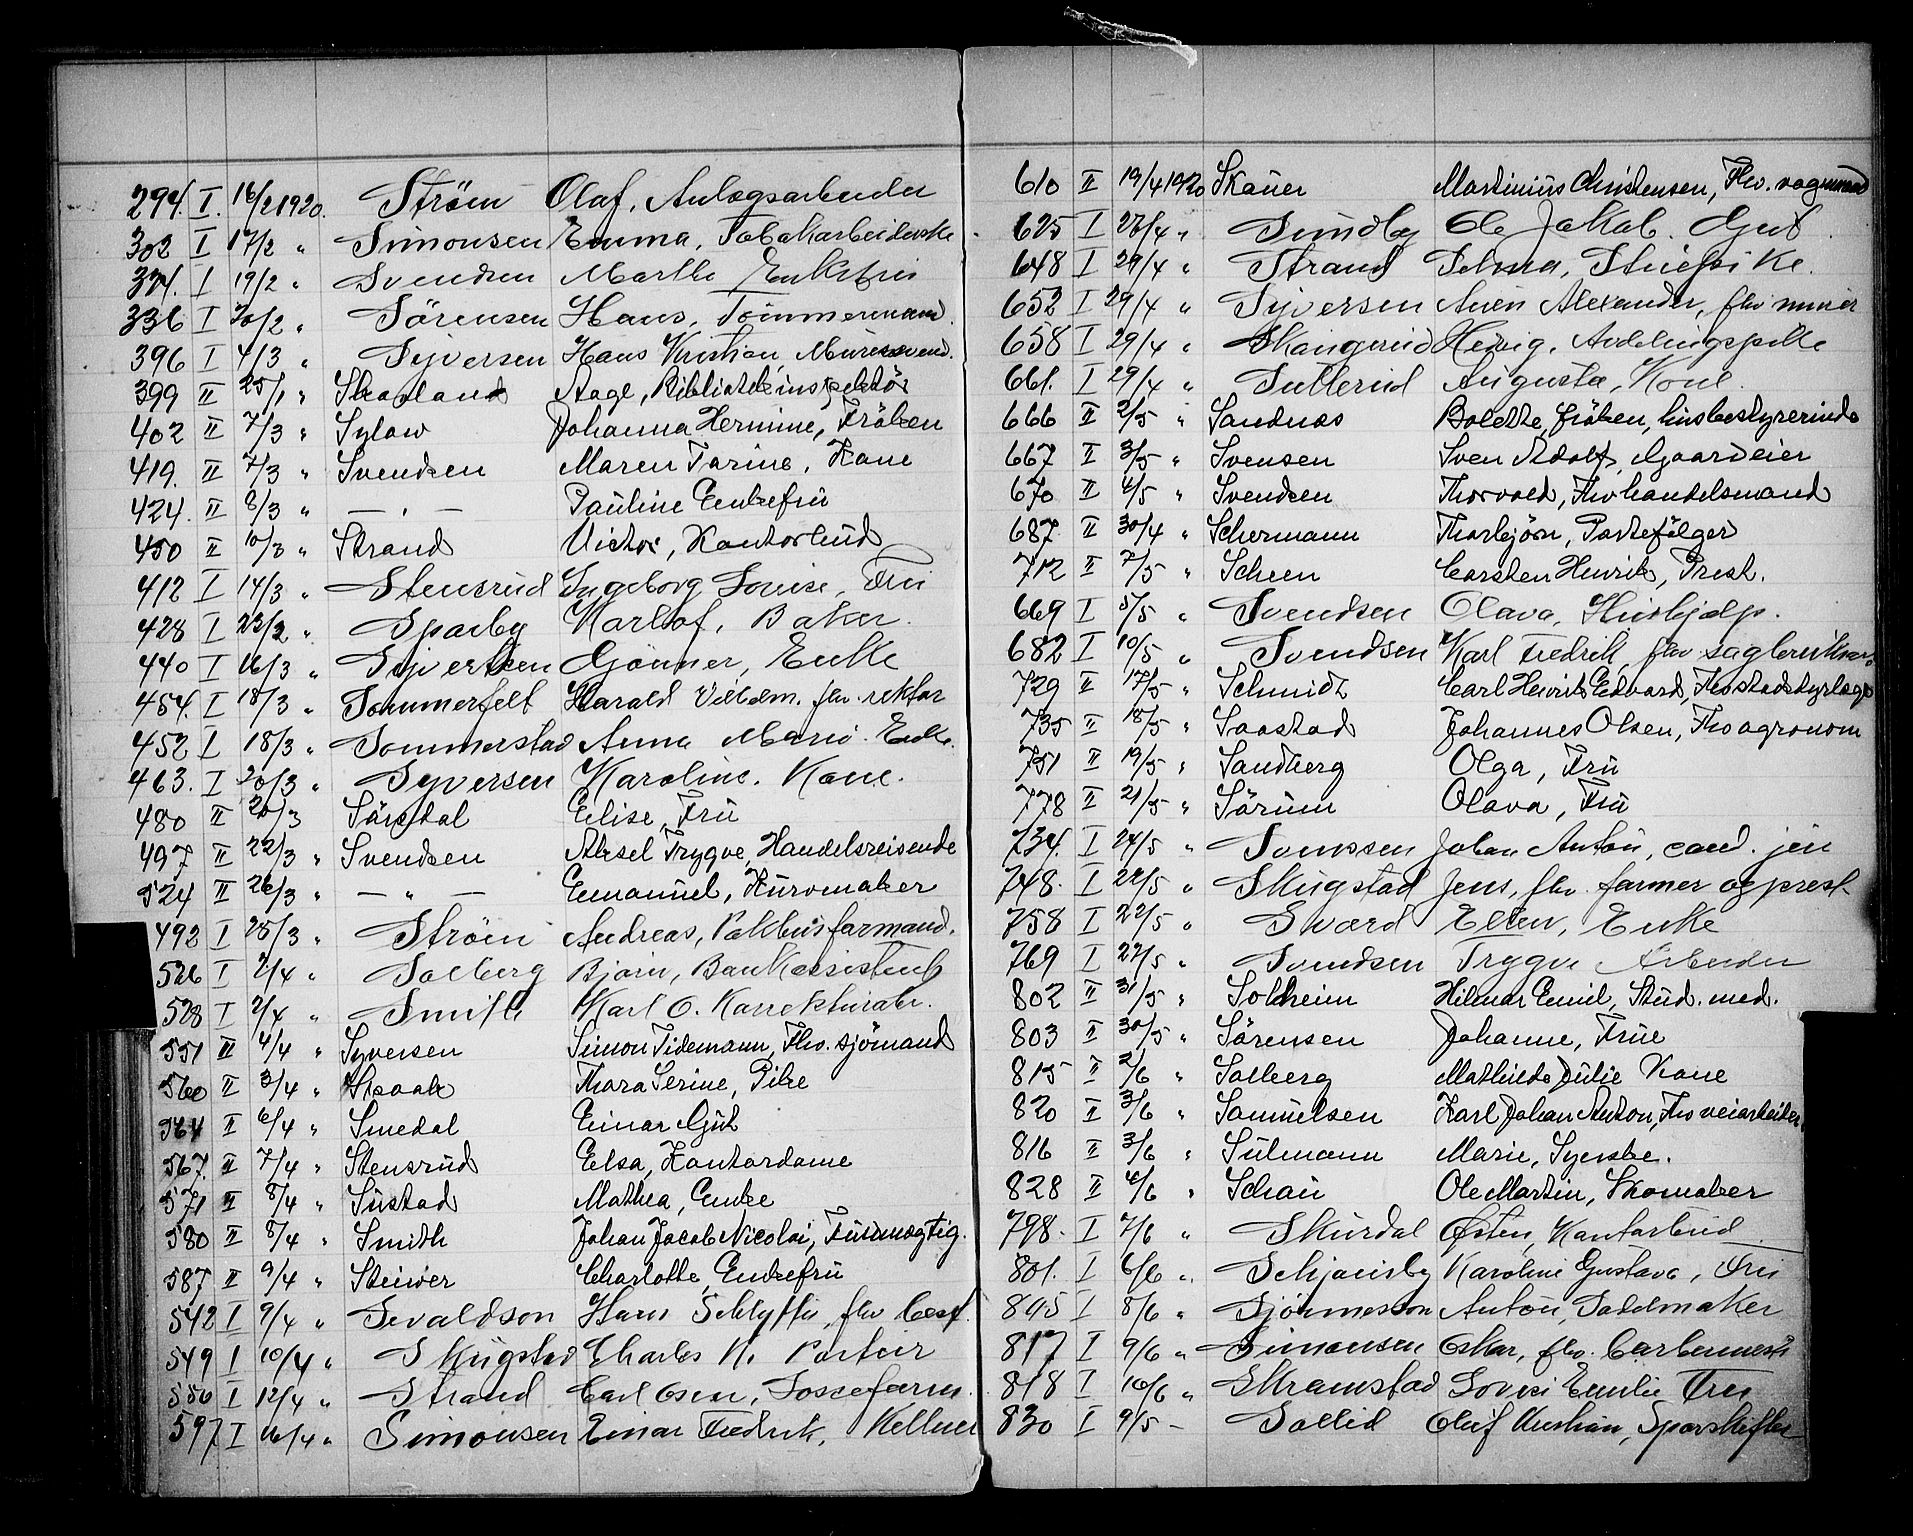 294. I. 16/2 1920. Strøm Olaf, Anlægsarbeider
302 I 17/2 " Simonsen Emma, Tobakarbeiderske
331. I 19/2 " Svendsen Marthe Enkefru
336 I 20/2 " Sörensen Hans, Tömmermand.
396 I 4/3 " Syversen Hans Kristian, Murersvend.
399 II 25/1 " Skavland Aage, Bibliotekinspektör
402 II 7/3 " Sylow Johanna Hermine, Fröken
419. II 7/3 " Svendsen Maren Tarine, Kone
424. II 8/3 " — " — Pauline Enkefru
450 II 10/3 " Strand Victor, Kontorbud
412 I 14/3 " Stensrud Ingeborg Lovise, Fru
428 I 23/2 " Sparby Karlof, Baker.
440 I 16/3 " Syvertsen Gönner, Enke
454. I 18/3 " Sommerfelt Harald Vilhelm. fhv. rektor
452 I 18/3 " Sommerstad Anna Marie. Enke.
463. I 20/3 " Syversen Karoline. Kone.
480 II 20/3 Sörstdal Elise, Fru
497 II 22/3 " Svendsen Aksel Trygve, Handelsreisende
524 II 26/3 " — " — Emanuel, Kurvmaker
492 I 28/3 " Strøm Andreas, Pakhusformand.
526 I 2/4 " Solberg Bjørn, Bankassistent
528 I 2/4 " Smith Karl O. Korrekturlæ.
551 II 4/4 " Syversen Simon Tidemann, Fhv. sjömand
560 II 3/4 " Skaak Thora Serine, Pike
564 II 6/4 " Smedal Einar Gut
567. II 7/4 " Stensrud Elsa, Kontordame
571 II 8/4 " Sustad Mathea, Enke
580 II 8/4 " Smith Johan Jacob Nicolai, Fuldmægtig.
587 II 9/4 " Steiwer Charlotte, Enkefru
542 I 9/4 " Sevaldson Hans Schlytter, fhv. best.
549 I 10/4 " Skugstad Charles K. Portier
556 I 12/4 " Strand Carl Osen, Losseform.
597 I 16/4 " Simonsen Einar Fredrik, Kellner
610 II 19/4 1920 Skauer Martinius Christensen, Fhv. vognmand
625 I 26/4 " Sundby Ole Jakob. Gut
648 I 29/4 " Strand Selma, Stuepike.
652 I 29/4 " Syversen Auen Alexander, fhv murer
658 I 29/4 " Skangerud Helvig, Avdelingspleie
661. I 29/4 " Sullerud Augusta, Kone.
666 II 2/5 " Sandnæs Bolette, fröken, husbestyrerinde
667 II 3/5 " Svensen Sven Adolf, Gaardeier
670 II 4/5 " Svendsen Thorvald, Fhv handelsmand
687 II 30/4 " Schermann Thorbjörn, Postefölger
712 II 7/5 " Scheen Carsten Henrik, Prest.
669 I 5/5 " Svendsen Olava, Hushjælp.
682 I 10/5 " Svendsen Karl Fredrik, fhv sagbruksarb
729 II 17/5 " Schmidt Carl Henrik Edvard, Fhv stadsdyrlæge
735 II 18/5 " Saastad Johannes Olsen, Fhv agronom
751 II 19/5 " Sandberg Olga, Fru
778 II 21/5 " Sörum Olava, Fru
734. I 24/5 " Svenssen Johan Anton, cand. jur
748. I 22/5 " Skugstad Jens, fhv. farmer og prest
758 I 22/5 " Sværd Ellen, Enke
769 I 27/5 " Svendsen Trygve Arbeider
802 II 31/5 " Solheim Hilmar Emil, Stud. med.
803 II 30/5 " Sörensen Johanne, Frue
815 II 2/6 " Solberg Mathilde Julie Kone
820 II 3/6 " Samuelsen Karl Johan Anton, Fhv veiarbeider.
816 II 3/6 " Sulmann Marie, Syerske.
828 II 4/6 " Schau Ole Martin, Skomaker
798. I 7/6 " Skurdal Østen, Kontorbud
801. I 6/6 " Schjansby Karoline Gustava, Fru
845 I 8/6 " Sjönnesson Anton, Sadelmaker
817 I 9/6 " Simonsen Oskar, fhv.
818 I 10/6 " Skramstad Lovise Emilie Fru
830 I 9/5 — Sollid Oluf Kristian, Sporskifter